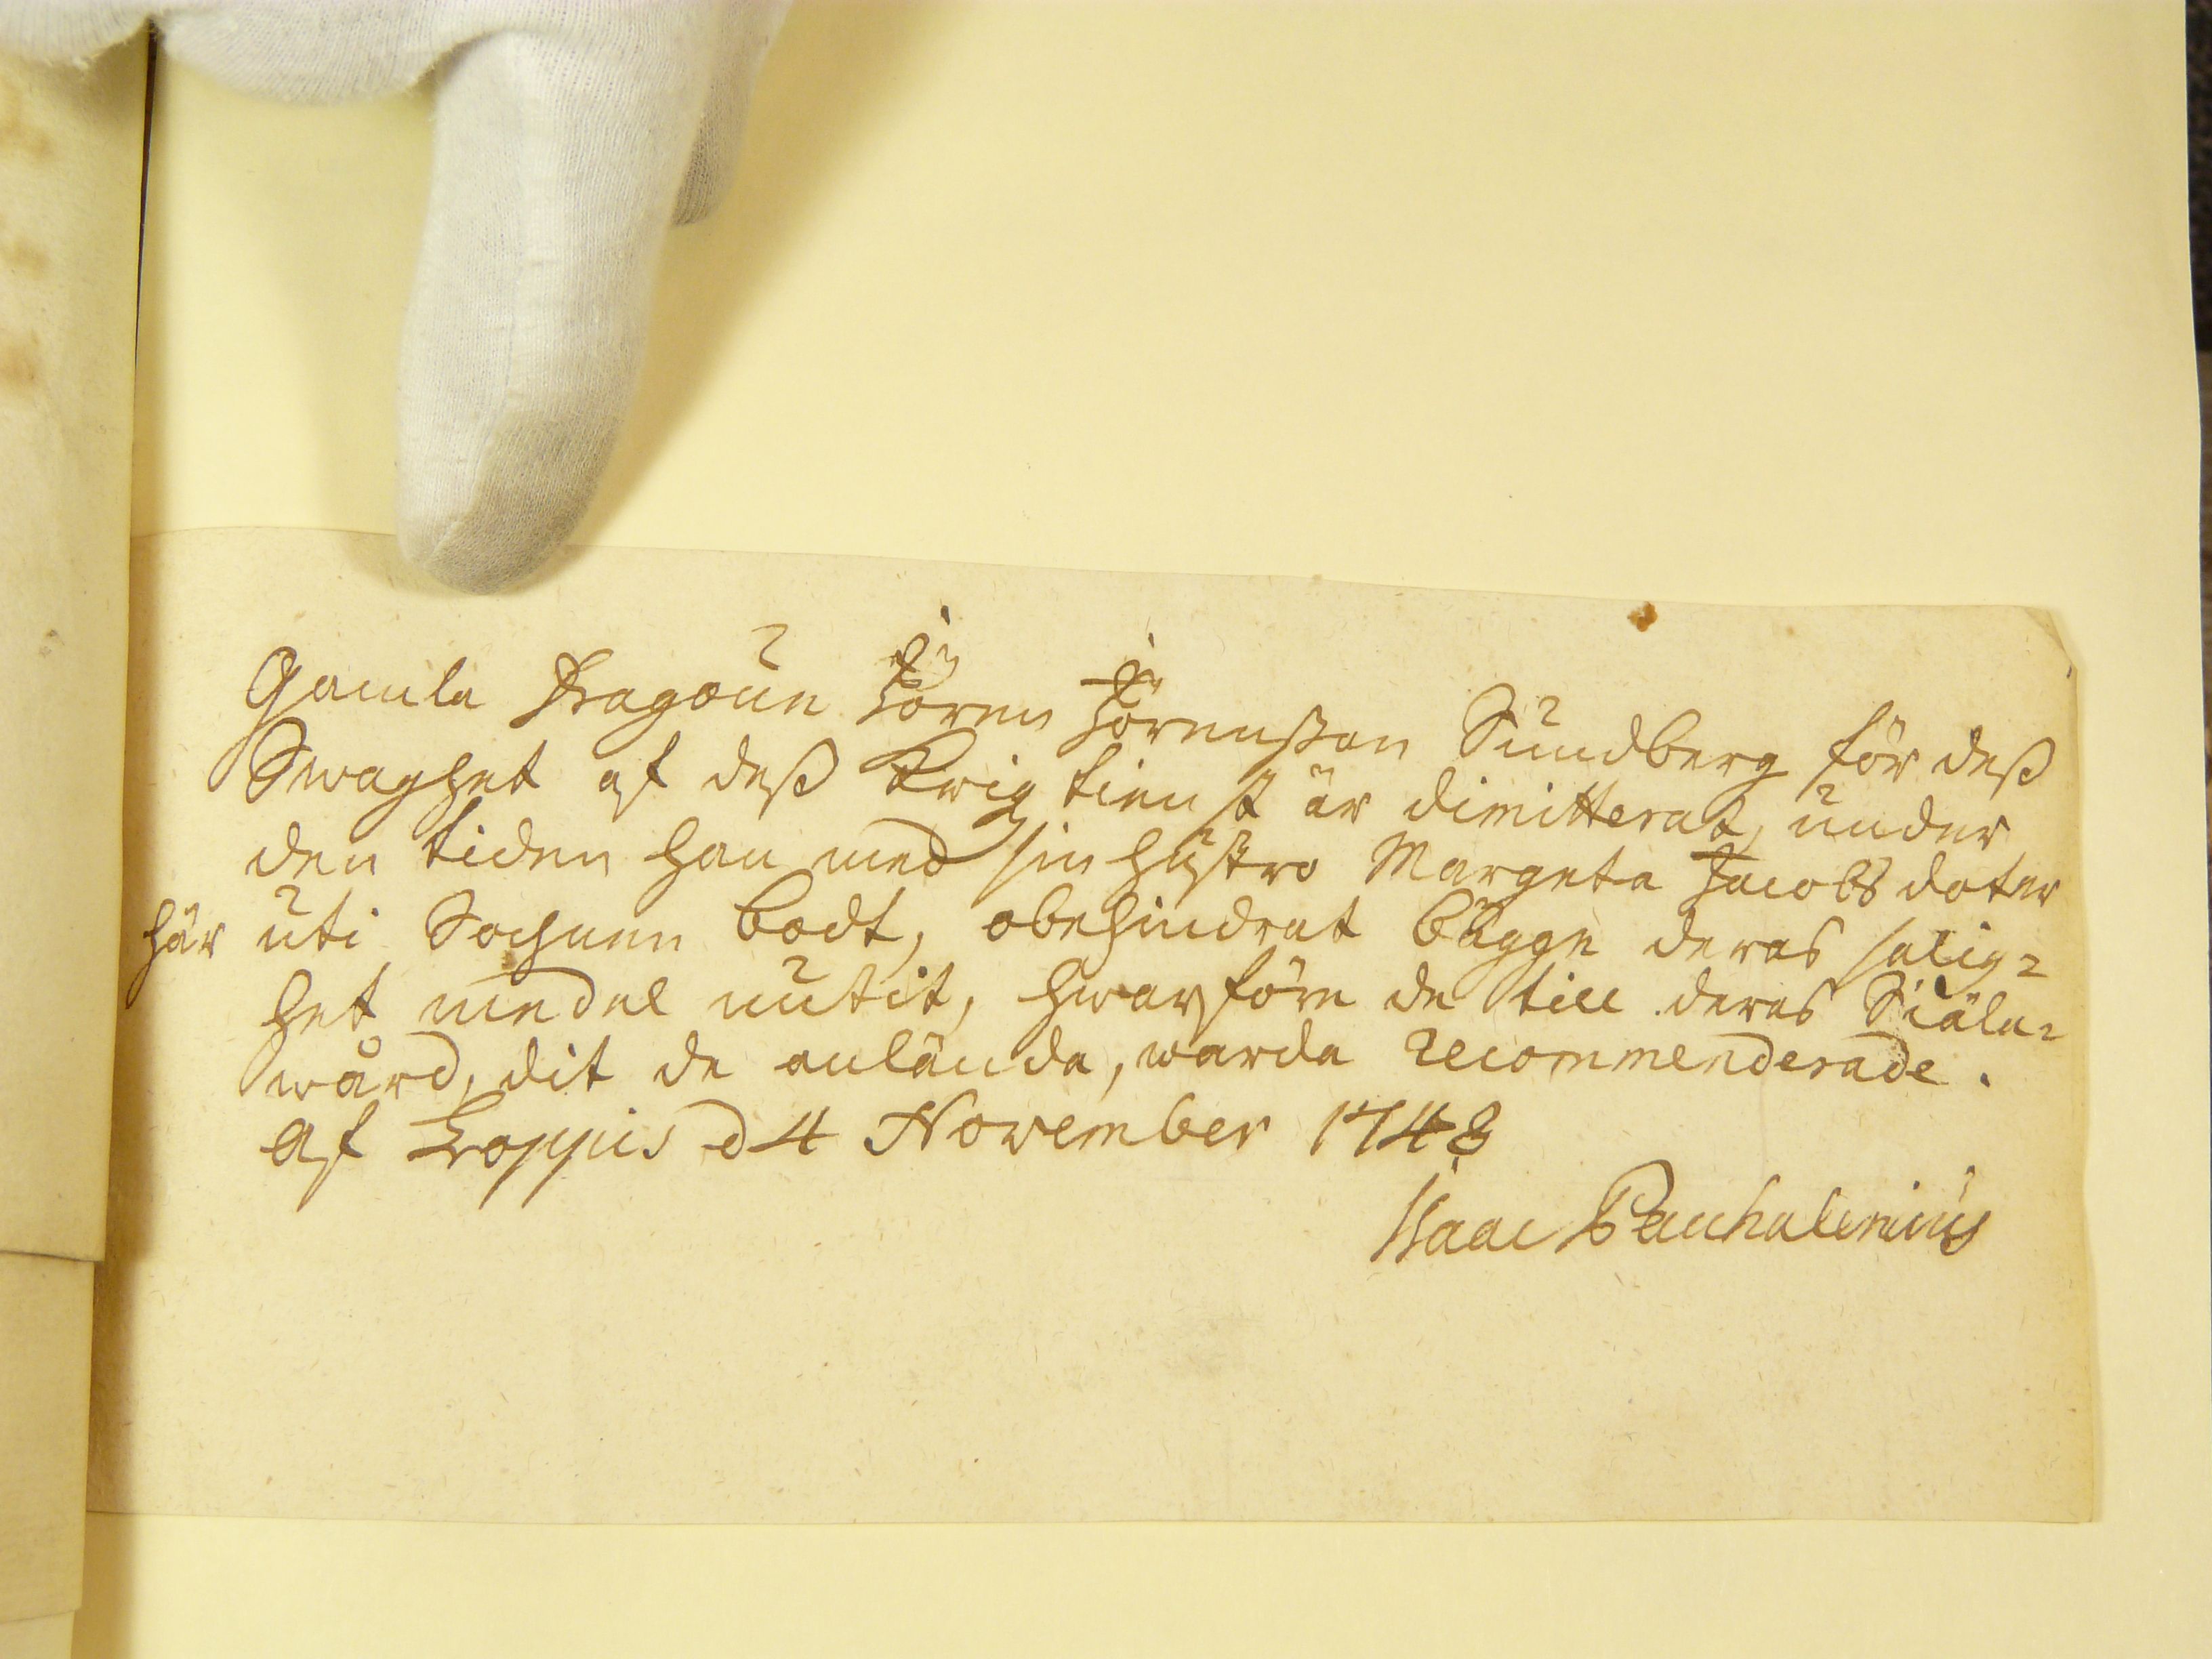 Gamla Dragoun Jören Jörenßon Sundberg för deß
Swaghet af deß Krigtienst är dimitterat, under
den tiden han med sin hustro Margeta Jacobs doter
här uti Sochnen bodt, obehindrat bägge deras salig=
het medel nutit, hwarföre de till deras Siäla=
wård, dit de anlända, warda recommenderade.
Af Loppis d 4 November 1748
Isaac Pauhalenius